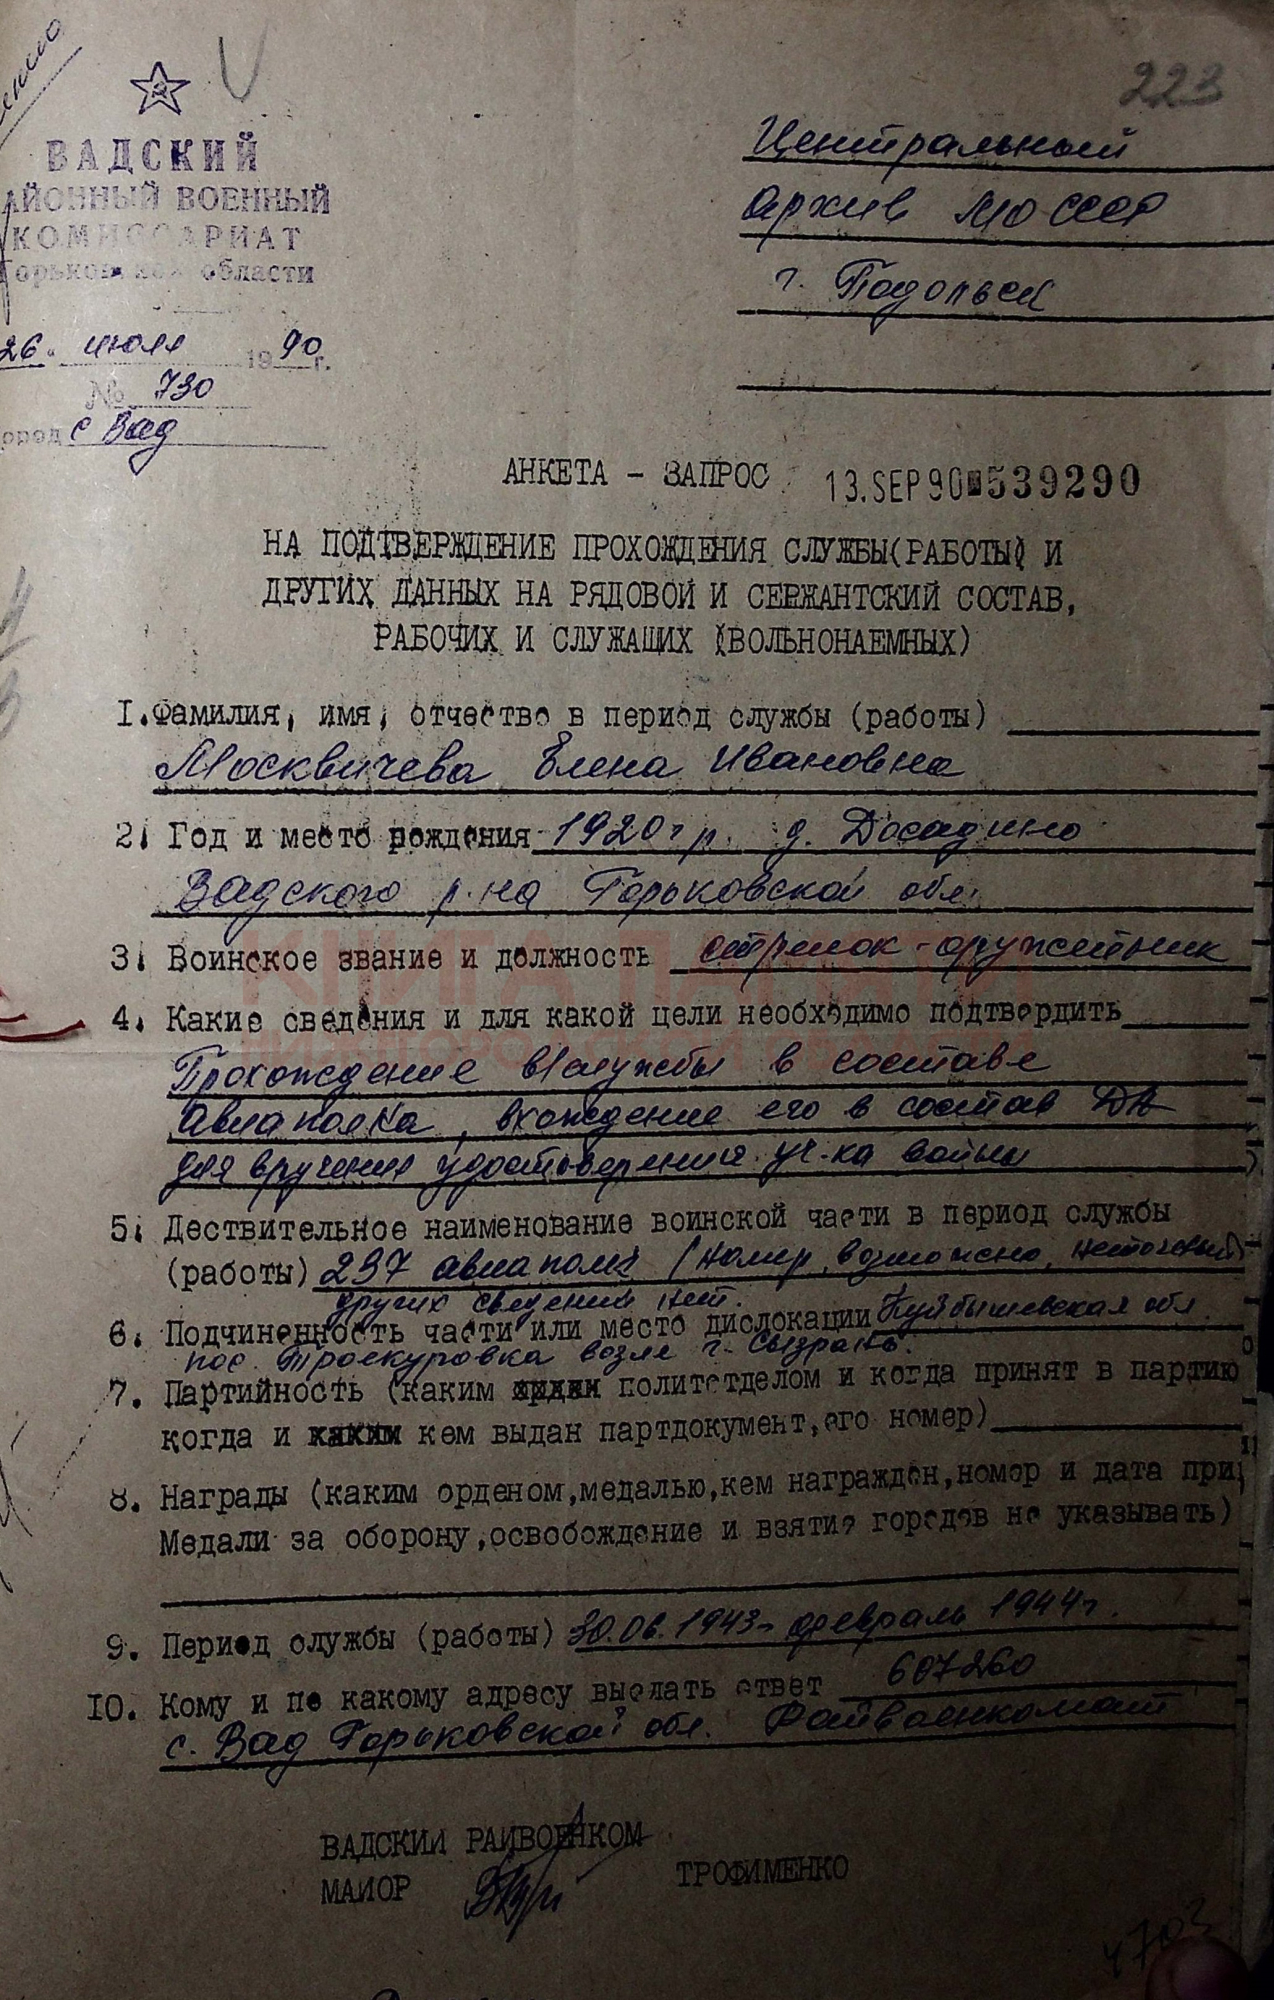 223
ВАДСКИЙ
РАЙОННЫЙ ВОЕННЫЙ
КОМИССАРИАТ
Горьковской области
26. июля 1990 г.
№ 730
город с Вад
Центральный
Архив МО СССР
г. Подольск
АНКЕТА - ЗАПРОС 13.SEP90 539290
НА ПОДТВЕРЖДЕНИЕ ПРОХОЖДЕНИЯ СЛУЖБЫ(РАБОТЫ) И
ДРУГИХ ДАННЫХ НА РЯДОВОЙ И СЕРЖАНТСКИЙ СОСТАВ,
РАБОЧИХ И СЛУЖАЩИХ (ВОЛЬНОНАЕМНЫХ)
I. Фамилия, имя, отчество в период службы (работы)
Москвичева Елена Ивановна
2. Год и место рождения 1920 г р. д. Досадино
Вадского р-на Горьковской обл.
КНИГА ПАМЯТИ
НИЖЕГОРОДСКОЙ ОБЛАСТИ
3. Воинское звание и должность стрелок-оружейник
4. Какие сведения и для какой цели необходимо подтвердить
Прохождение в/службы в составе
Авиаполка, вхождение его в состав ДА
для вручения удостоверения уч-ка войны
5. Дествительное наименование воинской части в период службы
(работы) 237 авиаполк (номер, возможно, неточный)
других сведений нет.
6. Подчиненность части или место дислокации Куйбышевская обл
пос. Троекуровка возле г. Сызрань.
7. Партийность (каким политотделом и когда принят в партию
когда и каким кем выдан партдокумент,его номер)
8. Награды (каким орденом,медалью,кем награжден,номер и дата при
Медали за оборону,освобождение и взятие городов не указывать)
9. Период службы (работы) 30.06.1943г февраль 1944г.
I0. Кому и по какому адресу выслать ответ 607260
с. Вад Горьковской обл. Райвоенкомат
ВАДСКИЙ РАЙВОЕНКОМ
МАЙОР ТРОФИМЕНКО
4703